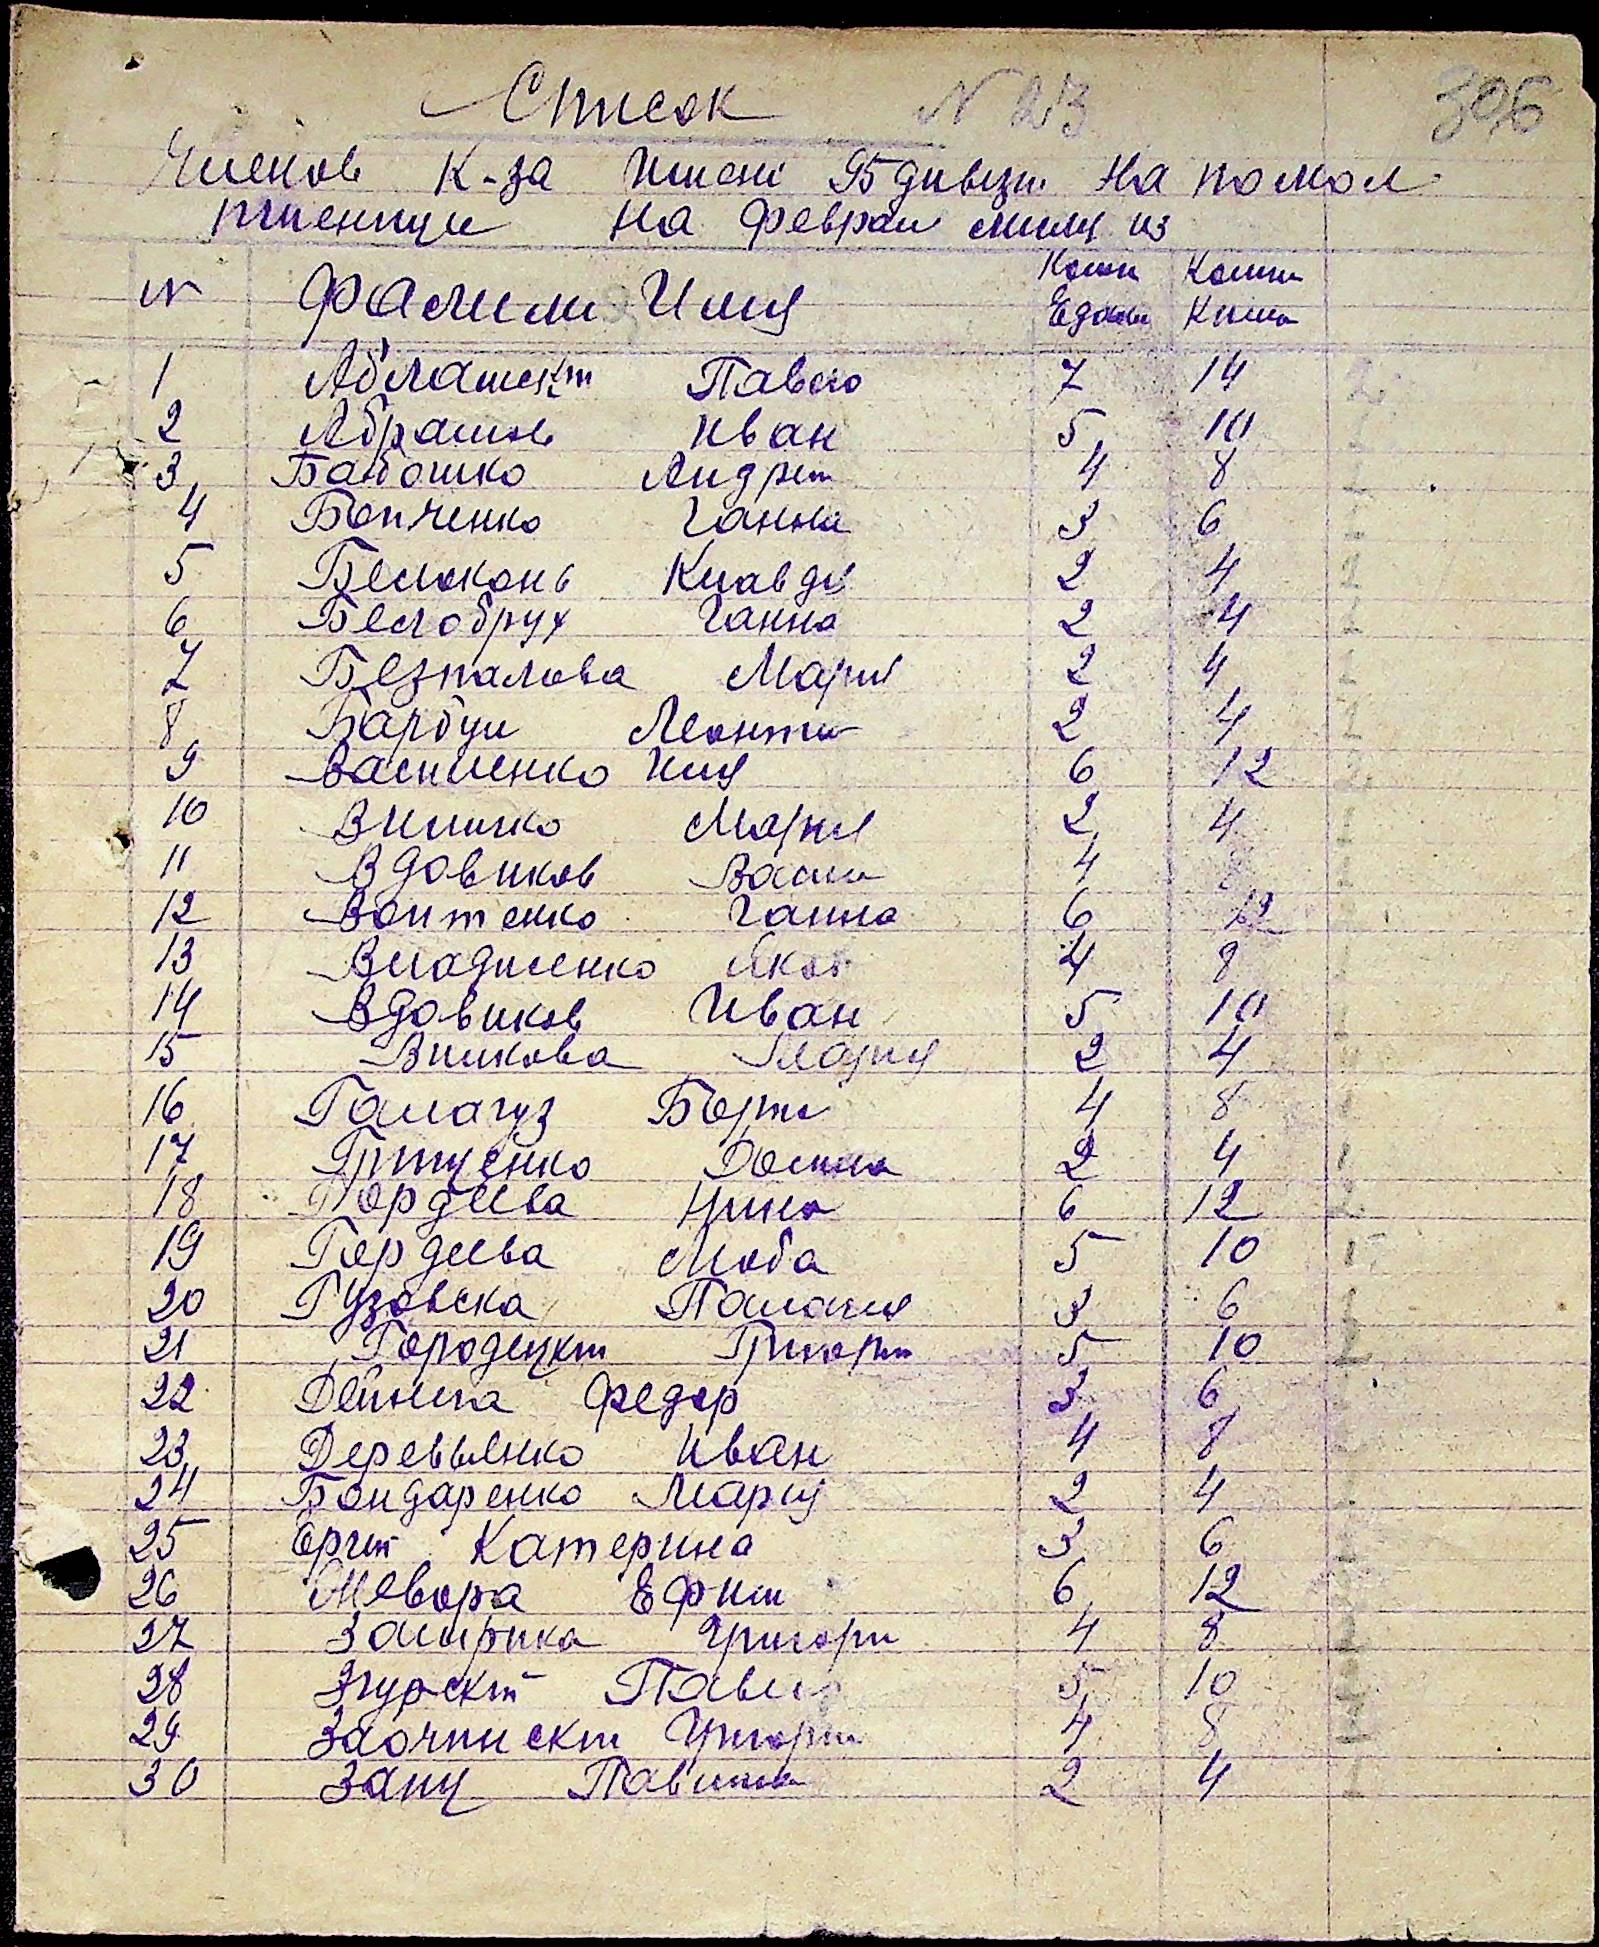 Список N 23 306
Членов К-за Имени 95 дивизи на помол
пшеници на Феврал месяц из
N Фамили Имя Колич Едоков Колич Кило
1 Павло 7 14
2 Абрамов Иван 5 10
3 Бабошко Андрей 4 8
4 Бопченко Ганна 3 6
5 Белоконь Клавдя 2 4
6 Белобрух Ганна 2 4
7 Безпалова Мария 2 4
8 Барбул Леонти 2 4
9 Василенко Илля 6 12
10 Мария 2 4
11 Вдовиков Васили 4 8
12 Войтенко Ганна 6 12
13 Владиленко Яков 4 8
14 Вдовиков Иван 5 10
15 Вилкова Мария 2 4
16 Галагуз Борис 4 8
17 Гриценко Домна 2 4
18 Гордеева Нина 6 12
19 Гордеева Люба 5 10
20 Гузовска Палагия 3 6
21 Городецкий Григорий 5 10
22 Дейнека Федор 3 6
23 Деревьянко Иван 4 8
24 Бондаренко Мария 2 4
25 Катерина 3 6
26 Ефим 6 12
27 Замрика Григори 4 8
28 Згурский Павел 5 10
29 Григорий 4 8
30 Заяц Павлина 2 4